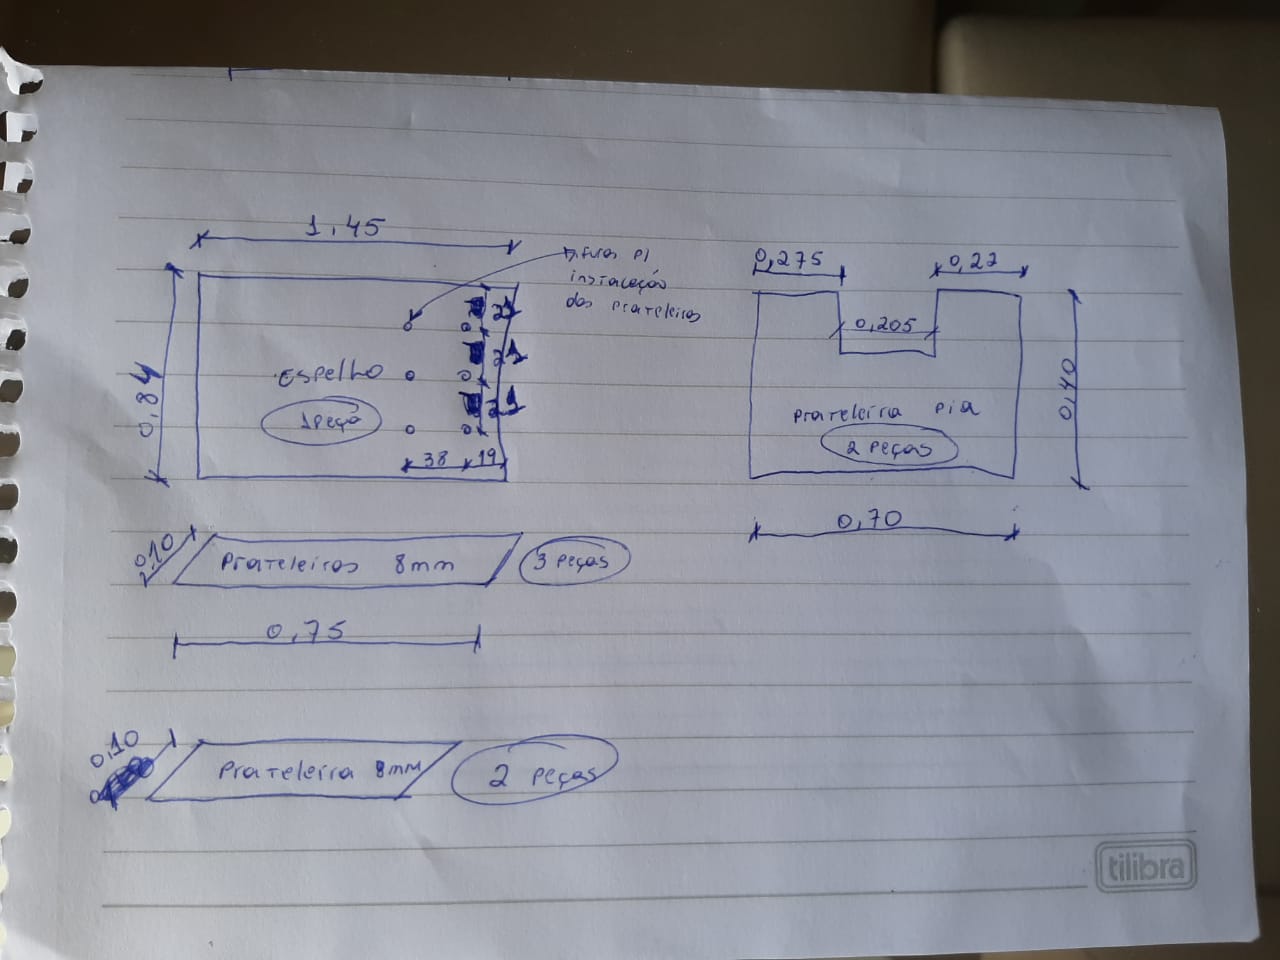 1,45
furos p/
instalação
das prateleiras
0,84
21
21
21
Espelho
1 peça
38 19
0,275
0,22
0,205
0,40
Prateleira pia
2 peças
0,70
0,10
Prateleiras 8mm
3 peças
0,75
0,10
Prateleira 8mm
2 peças
tilibra